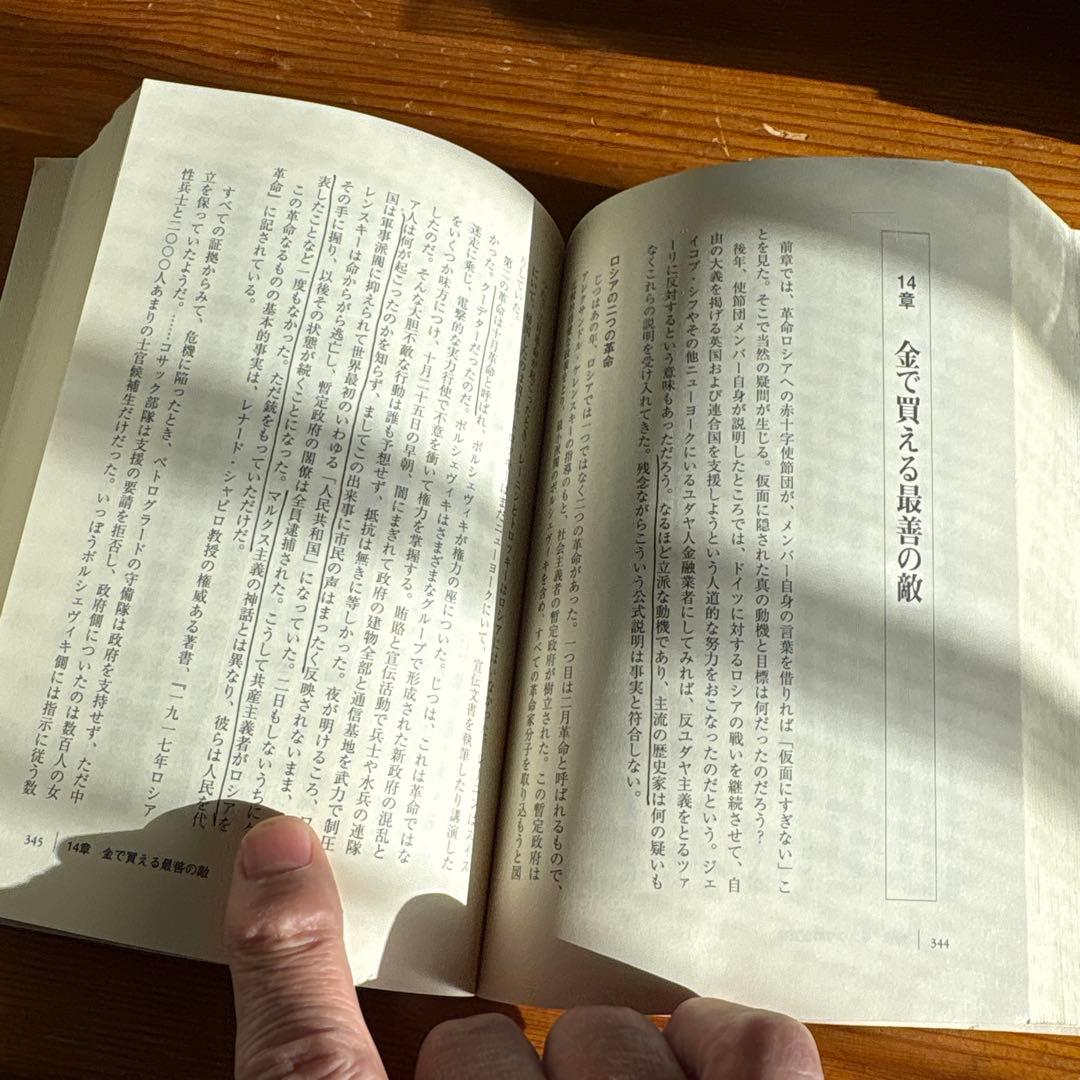 344
14章 金で買える最善の敵
前章では、革命ロシアへの赤十字使節団が、メンバー自身の言葉を借りれば「仮面にすぎない」こ
とを見た。そこで当然の疑問が生じる。仮面に隠された真の動機と目標は何だったのだろう?
後年、使節団メンバー自身が説明したところでは、ドイツに対するロシアの戦いを継続させて、自
由の大義を掲げる英国および連合国を支援しようという人道的な努力をおこなったのだという。ジェ
イコブ・シフやその他ニューヨークにいるユダヤ人金融業者にしてみれば、反ユダヤ主義をとるツァ
ーリに反対するという意味もあっただろう。なるほど立派な動機であり、主流の歴史家は何の疑いも
なくこれらの説明を受け入れてきた。残念ながらこういう公式説明は事実と符合しない。
ロシアの二つの革命
じつはあの年、ロシアでは一つではなく二つの革命があった。一つ目は二月革命と呼ばれるもので、
アレクサンドル・ケレンスキーの指導のもと、社会主義者の暫定政府が樹立された。この暫定政府は
ボルシェヴィキを含め、すべての革命家分子を取り込もうと図
りしていた。
第二の革命は十月革命と呼ばれ、ボルシェヴィキが権力の座についた。じつは、これは革命ではな
かった。クーデターだったのだ。ボルシェヴィキはさまざまなグループで形成された新政府の混乱と
迷走に乗じ、電撃的な実力行使で不意を衝いて権力を掌握する。賄賂と宣伝活動で兵士や水兵の連隊
をいくつか味方につけ、十月二十五日の早朝、闇にまぎれて政府の建物全部と通信基地を武力で制圧
したのだ。そんな大胆不敵な行動は誰も予想せず、抵抗は無きに等しかった。夜が明けるころ、ロ
ア人は何が起こったのかを知らず、ましてこの出来事に市民の声はまったく反映されないまま、
国は軍事派閥に抑えられて世界最初のいわゆる「人民共和国」になっていた。二日もしないうちに
レンスキーは命からがら逃亡し、暫定政府の閣僚は全員逮捕された。こうして共産主義者がロシアを
その手に握り、以後その状態が続くことになった。マルクス主義の神話とは異なり、彼らは人民を代
表したことなど一度もなかった。ただ銃をもっていただけだ。
この革命なるものの基本的事実は、レナード・シャピロ教授の権威ある著書、『一九一七年ロシア
革命』に記されている。
すべての証拠からみて、危機に陥ったとき、ペトログラードの守備隊は政府を支持せず、ただ中
立を保っていたようだ。……コサック部隊は支援の要請を拒否し、政府側についたのは数百人の女
性兵士と二〇〇〇人あまりの士官候補生だけだった。いっぽうボルシェヴィキ側には指示に従う数
345 14章 金で買える最善の敵